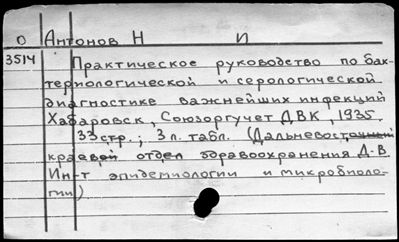 О Антонов Н И
3514 Практическое руководство по бак-
териологической и серологической
диагностике важнейших инфекций
Хабаровск, Союзоргучет ДВК, 1935.
33 стр.; 3 л. табл. (Дальневосточный
краевой отдел здравоохранения Д-В.
Ин-т эпидемиологии и микробиоло-
гии)